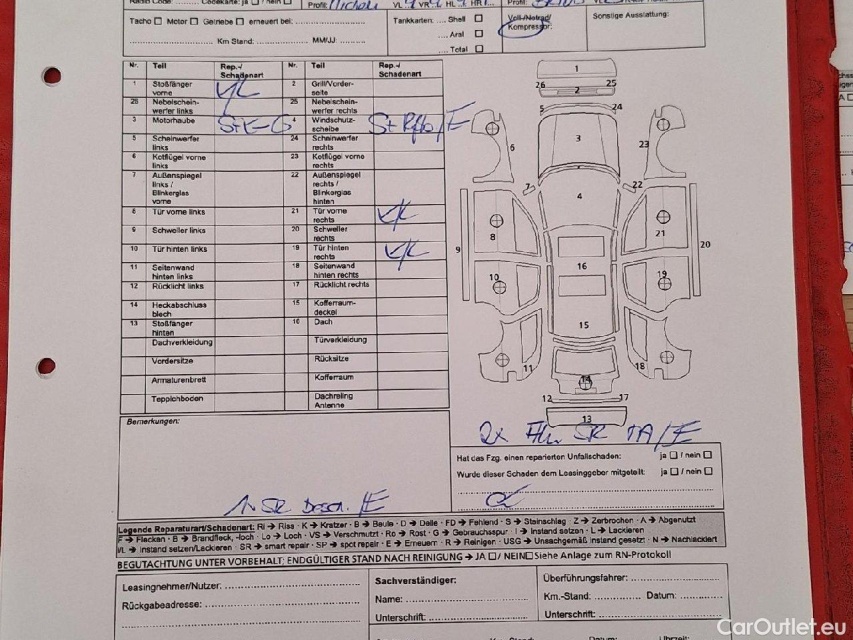 Radio Code: Codekarte: ja / nein
Profil: VL VR HL HR Profil:
Tacho Motor Getriebe erneuert bei:
Km Stand: MM/JJ:
Tankkarten: Shell
Aral
Total
Voll-/Notrad/
Kompressor:
Sonstige Ausstattung:
Nr. Teil Rep.-/ Schadenart Nr. Teil Rep.-/ Schadenart
1 Stoßfänger vorne 2 Grill/Vorder-seite
26 Nebelschein-werfer links 25 Nebelschein-werfer rechts
3 Motorhaube St E-G 4 Windschutz-scheibe
5 Scheinwerfer links 24 Scheinwerfer rechts
6 Kotflügel vorne links 23 Kotflügel vorne rechts
7 Außenspiegel links / Blinkerglas vorne 22 Außenspiegel rechts / Blinkerglas hinten
8 Tür vorne links 21 Tür vorne rechts
9 Schweller links 20 Schweller rechts
10 Tür hinten links 19 Tür hinten rechts
11 Seitenwand hinten links 18 Seitenwand hinten rechts
12 Rücklicht links 17 Rücklicht rechts
14 Heckabschluss blech 15 Kofferraum-deckel
13 Stoßfänger hinten 16 Dach
Dachverkleidung Türverkleidung
Vordersitze Rücksitze
Armaturenbrett Kofferraum
Teppichboden Dachreling Antenne
1
26 25
2
5 24
6 3 23
7 22
4
8 21
9 20
16
10 19
15
11 18
14
12 17
13
Bemerkungen:
Hat das Fzg. einen reparierten Unfallschaden: ja / nein
Wurde dieser Schaden dem Leasinggeber mitgeteilt: ja / nein
Legende Reparaturart/Schadenart: Ri → Riss · K → Kratzer · B → Beule · D → Delle · FD → Fehlend · S → Steinschlag · Z → Zerbrochen · A → Abgenutzt
F → Flecken · B → Brandfleck, -loch · Lo → Loch · VS → Verschmutzt · Ro → Rost · G → Gebrauchsspur · I → Instand setzen · L → Lackieren
I/L → Instand setzen/Lackieren · SR → smart repair · SP → spot repair · E → Erneuern · R → Reinigen · USG → Unsachgemäß instand gesetzt · N → Nachlackiert
BEGUTACHTUNG UNTER VORBEHALT; ENDGÜLTIGER STAND NACH REINIGUNG → JA / NEIN Siehe Anlage zum RN-Protokoll
Leasingnehmer/Nutzer:
Rückgabeadresse:
Sachverständiger:
Name:
Unterschrift:
Überführungsfahrer:
Km.-Stand: Datum:
Unterschrift:
Datum: Uhrzeit:
CarOutlet.eu